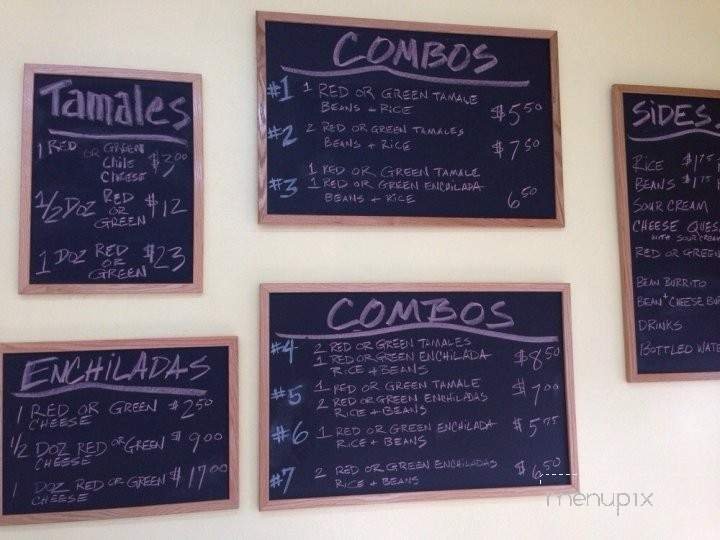 Tamales
1 RED OR GREEN $3.00
CHILE
CHEESE
1/2 DOZ RED OR GREEN $12
1 DOZ RED OR GREEN $23
ENCHILADAS
1 RED OR GREEN $2.50
CHEESE
1/2 DOZ RED OR GREEN $9.00
CHEESE
1 DOZ RED OR GREEN $17.00
CHEESE
COMBOS
#1 1 RED OR GREEN TAMALE
BEANS + RICE $5.50
#2 2 RED OR GREEN TAMALES
BEANS + RICE $7.50
1 RED OR GREEN TAMALE
#3 1 RED OR GREEN ENCHILADA
BEANS + RICE 6.50
COMBOS
#4 2 RED OR GREEN TAMALES
1 RED OR GREEN ENCHILADA $8.50
RICE + BEANS
#5 1 RED OR GREEN TAMALE $7.00
2 RED OR GREEN ENCHILADAS
RICE + BEANS
#6 1 RED OR GREEN ENCHILADA $5.75
RICE + BEANS
#7 2 RED OR GREEN ENCHILADAS $6.50
RICE + BEANS
SIDES
RICE $1.75
BEANS $1.75
SOUR CREAM
CHEESE QUES
WITH SOUR CREAM
RED OR GREEN
BEAN BURRITO
BEAN + CHEESE BU
DRINKS
BOTTLED WATE
menupix